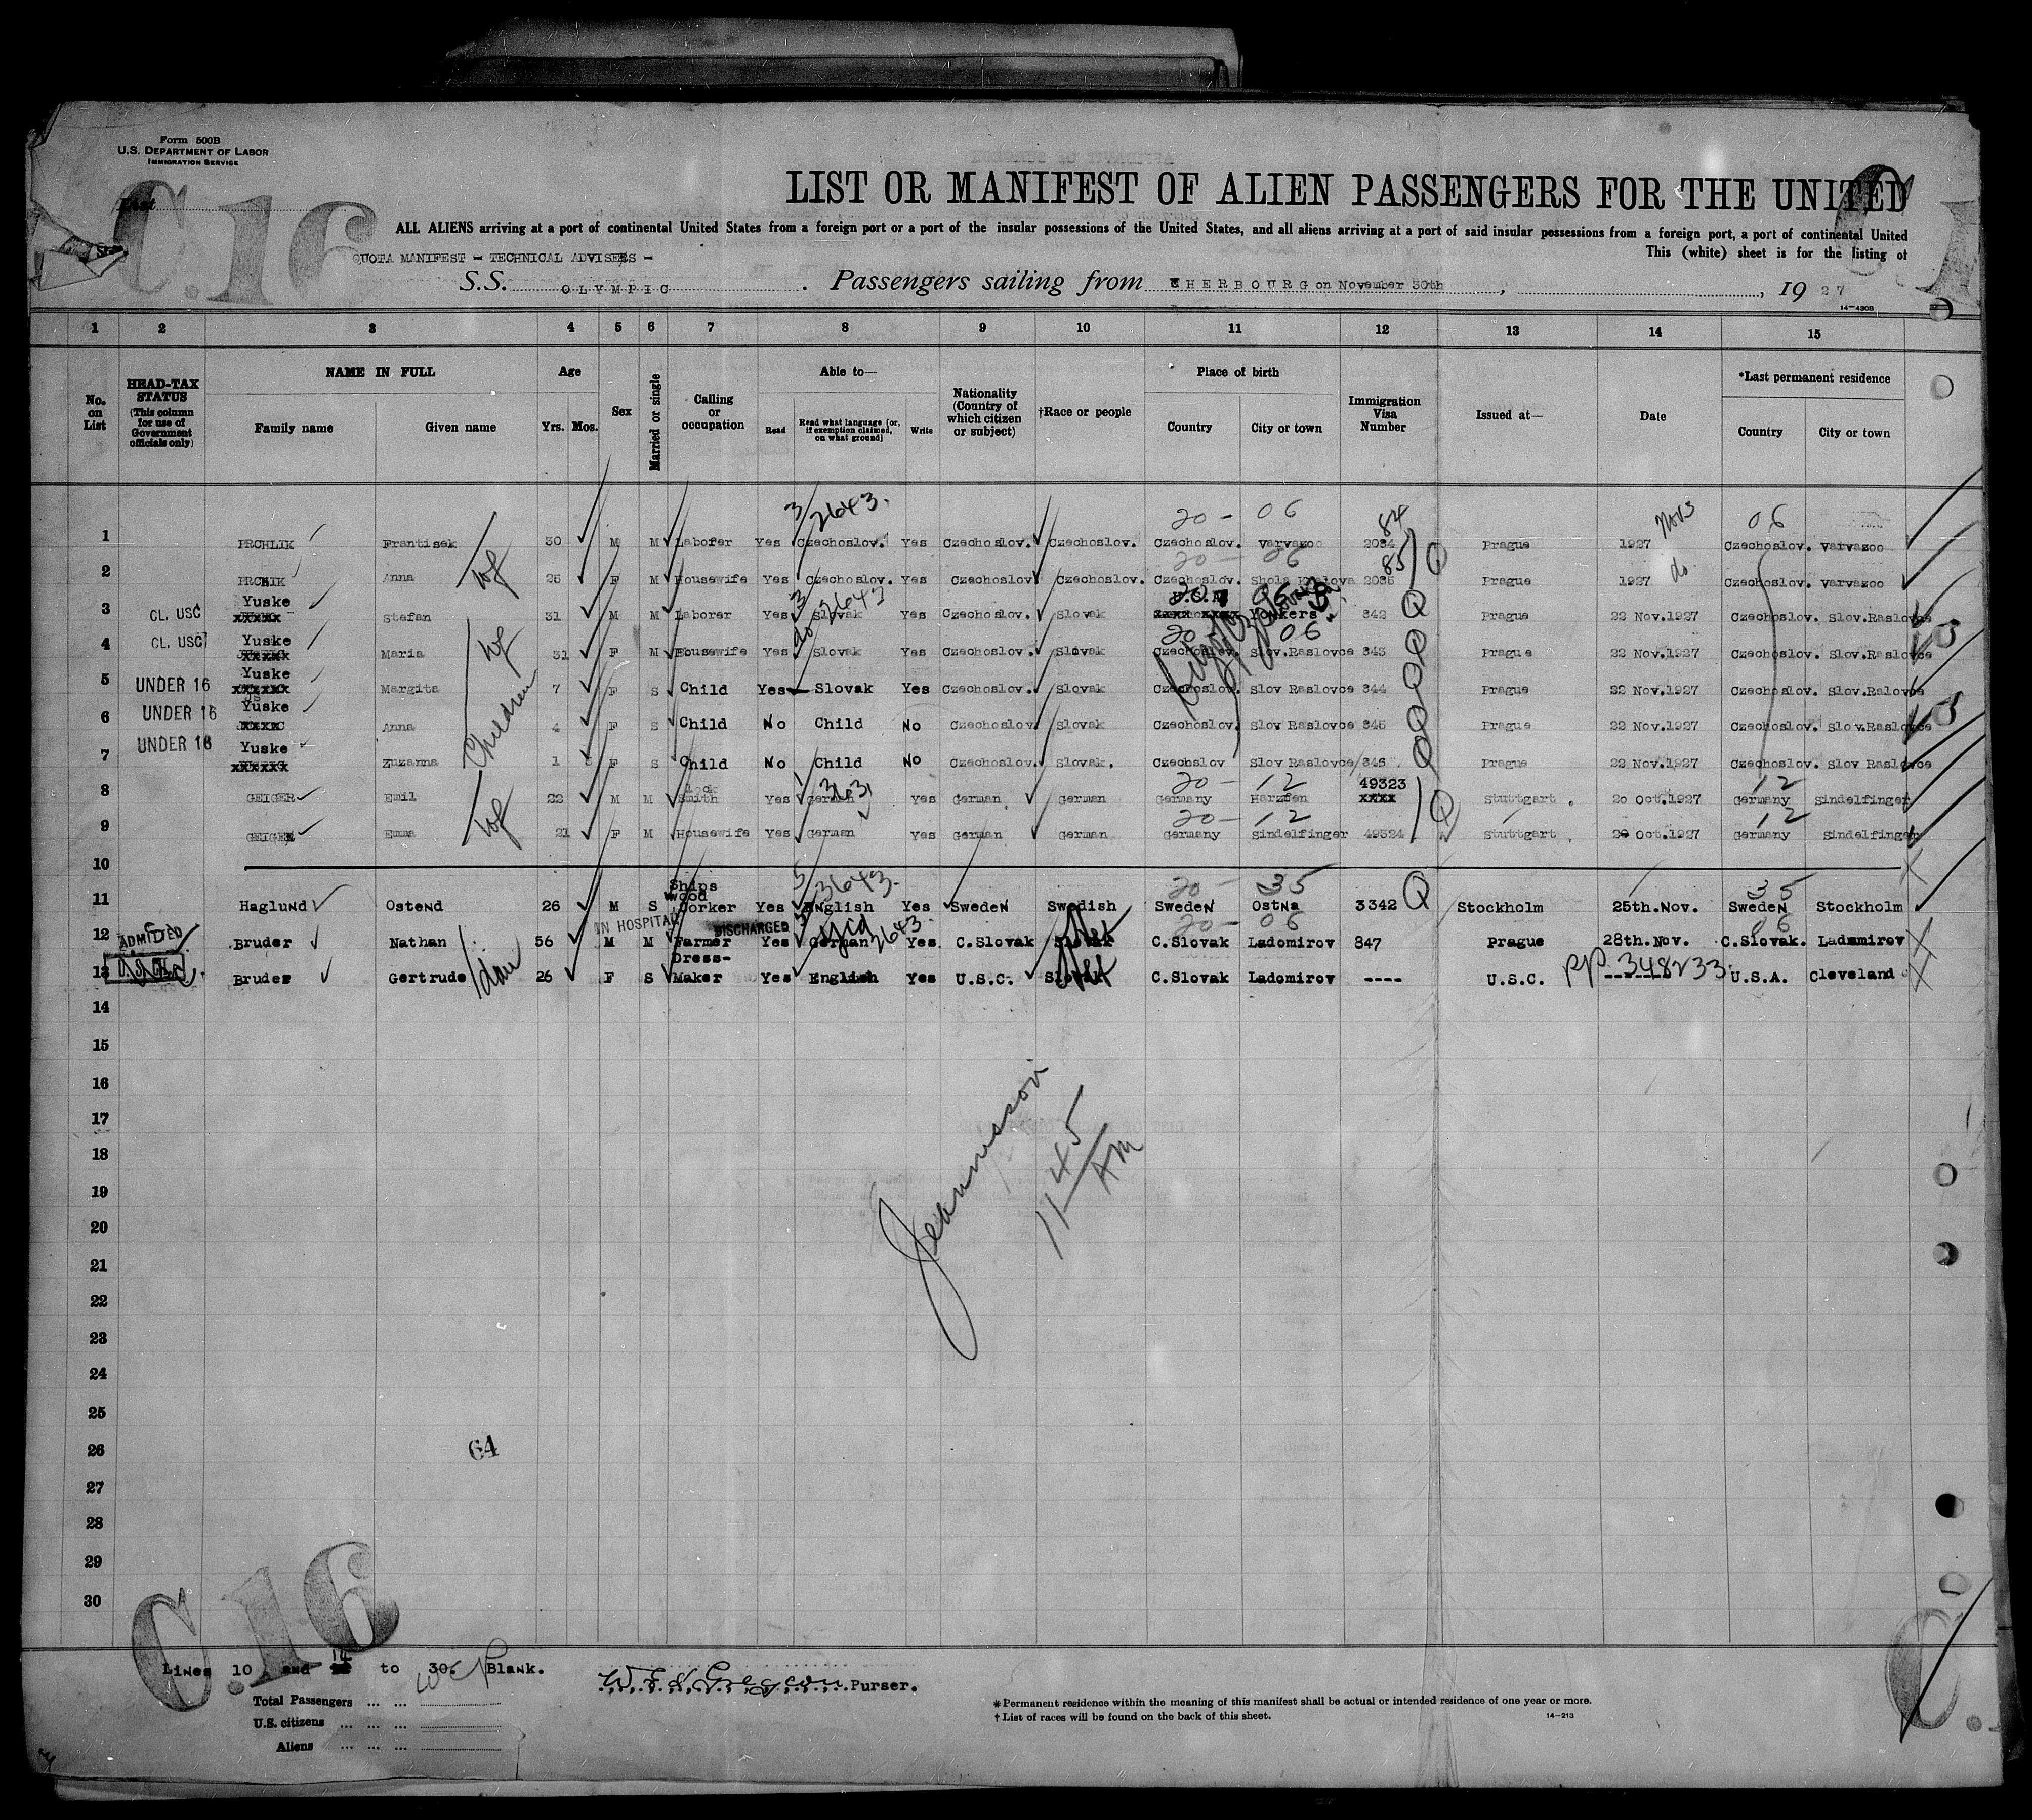 Form 500B
U.S. DEPARTMENT OF LABOR
IMMIGRATION SERVICE
C.16
List
LIST OR MANIFEST OF ALIEN PASSENGERS FOR THE UNITED
ALL ALIENS arriving at a port of continental United States from a foreign port or a port of the insular possessions of the United States, and all aliens arriving at a port of said insular possessions from a foreign port, a port of continental United
This (white) sheet is for the listing of
QUOTA MANIFEST - TECHNICAL ADVISEES -
S.S. OLYMPIC. Passengers sailing from CHERBOURG on November 30th, , 19 27
14-430B
1 2 3 4 5 6 7 8 9 10 11 12 13 14 15
No. on List
HEAD-TAX STATUS (This column for use of Government officials only)
NAME IN FULL Family name Given name
Age Yrs. Mos.
Sex
Married or single
Calling or occupation
Able to— Read Read what language [or, if exemption claimed, on what ground] Write
Nationality (Country of which citizen or subject)
†Race or people
Place of birth Country City or town
Immigration Visa Number
Issued at—
Date
*Last permanent residence Country City or town
3/2643. 20 - 06 84 Nov 3 06
1 PRCHLIK Frantisek 30 M M Laborer Yes Czechoslov. Yes Czechoslov. Czechoslov. Czechoslov. Varvazoo 2034 Prague 1927 Czechoslov. Varvazoo
20 - 06 85 Q do
2 Anna wf 25 F M Housewife Yes Czechoslov. Yes Czechoslov Czechoslov. Czechoslov. 2035 Prague 1927 Czechoslov. Varvazoo
3 2643
3 CL. USC Yuske xxxxx Stefan 31 M M Laborer Yes Slovak Yes Czechoslov. Slovak Yonkers 342 Q Prague 22 Nov.1927 Czechoslov. Slov.Raslovce
do 20 - 06
4 CL. USC Yuske Maria wf 31 F M Housewife Yes Slovak Yes Czechoslov. Slovak Czechoslov. Slov.Raslovce 343 Q Prague 22 Nov.1927 Czechoslov. Slov.Raslovce
5 UNDER 16 Yuske xxxxxx Margita Children 7 F S Child Yes Slovak Yes Czechoslov. Slovak Czechoslov. Slov Raslovce 344 Q Prague 22 Nov.1927 Czechoslov. Slov.Ralovce
6 UNDER 16 Yuske Anna 4 F S Child No Child No Czechoslov Slovak Czechoslov. Slov Raslovce 345 Q Prague 22 Nov.1927 Czechoslov. Slov.Raslovce
7 UNDER 16 Yuske xxxxxx Zuzanna 1 F S Child No Child No Czechoslov. Slovak. Czechslov Slov Raslovce 346 Q Prague 22 Nov.1927 Czechoslov. Slov Raslovce
20 - 12 49323 12
8 GEIGER Emil 22 M M Smith Yes German Yes German German Germany xxxx Q Stuttgart. 20 Oct.1927 Germany Sindelfinger
20 - 12 12
9 GEIGER Emma wf 21 F M Housewife Yes German Yes German German Germany Sindelfinger 49324 Stuttgart. 20 Oct.1927 Germany Sindelfinger
10
Ships wood 3643. 20 - 35 35
11 Haglund Ostend 26 M S Worker Yes English Yes Sweden Swedish Sweden Ostna 3342 Q Stockholm 25th.Nov. Sweden Stockholm
IN HOSPITAL DISCHARGED 20 - 06 06
12 ADMITTED Bruder Nathan 56 M M Farmer Yes German Yid 2643. Yes C.Slovak Heb C.Slovak Ladomirov 847 Prague 28th.Nov. C.Slovak. Ladamirov
Dress-
13 Bruder Gertrude dau 26 F S Maker Yes English Yes U.S.C. Slovak Heb C.Slovak Ladomirov ---- U.S.C. PP 348233 U.S.A. Cleveland
14
15
16
17
18
19
20
21
22
23
24
25
26
27
28
29
30
11 45 AM
64
C.16
Lines 10 and 14 to 30. Blank.
Total Passengers ... ...
U.S. citizens ... ... ...
Aliens ... ... ...
Purser.
* Permanent residence within the meaning of this manifest shall be actual or intended residence of one year or more.
† List of races will be found on the back of this sheet.
14-213